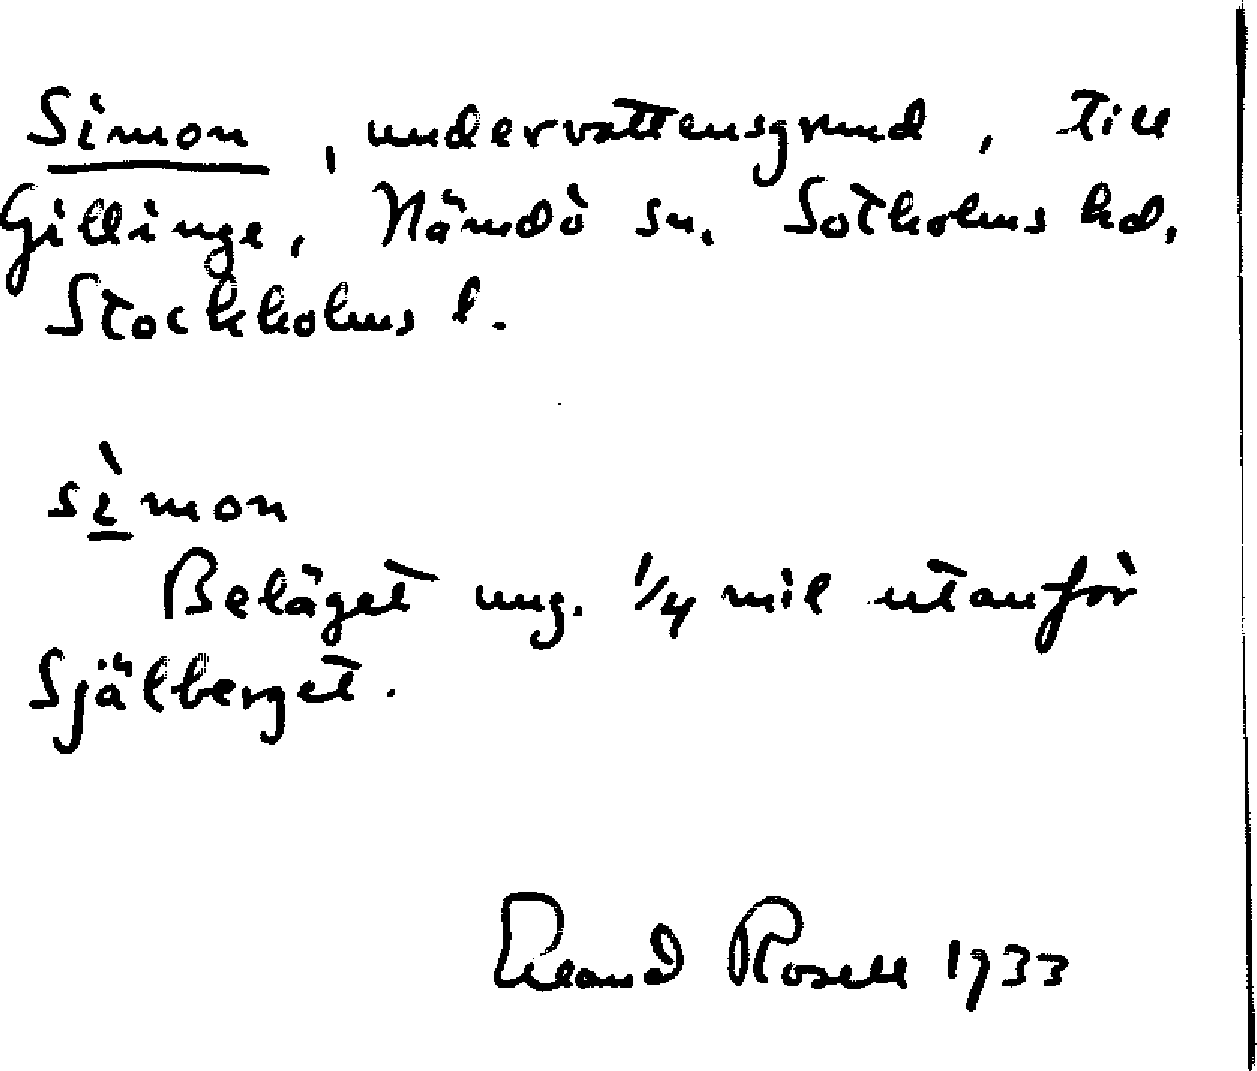 Simon, undervattensgrund, till
Gillinge, Nämdö sn. Sotholms hd,
Stockholms l.
sìmon
Beläget ung. 1/4 mil utanför
Själberget.
Erland Rosell 1933